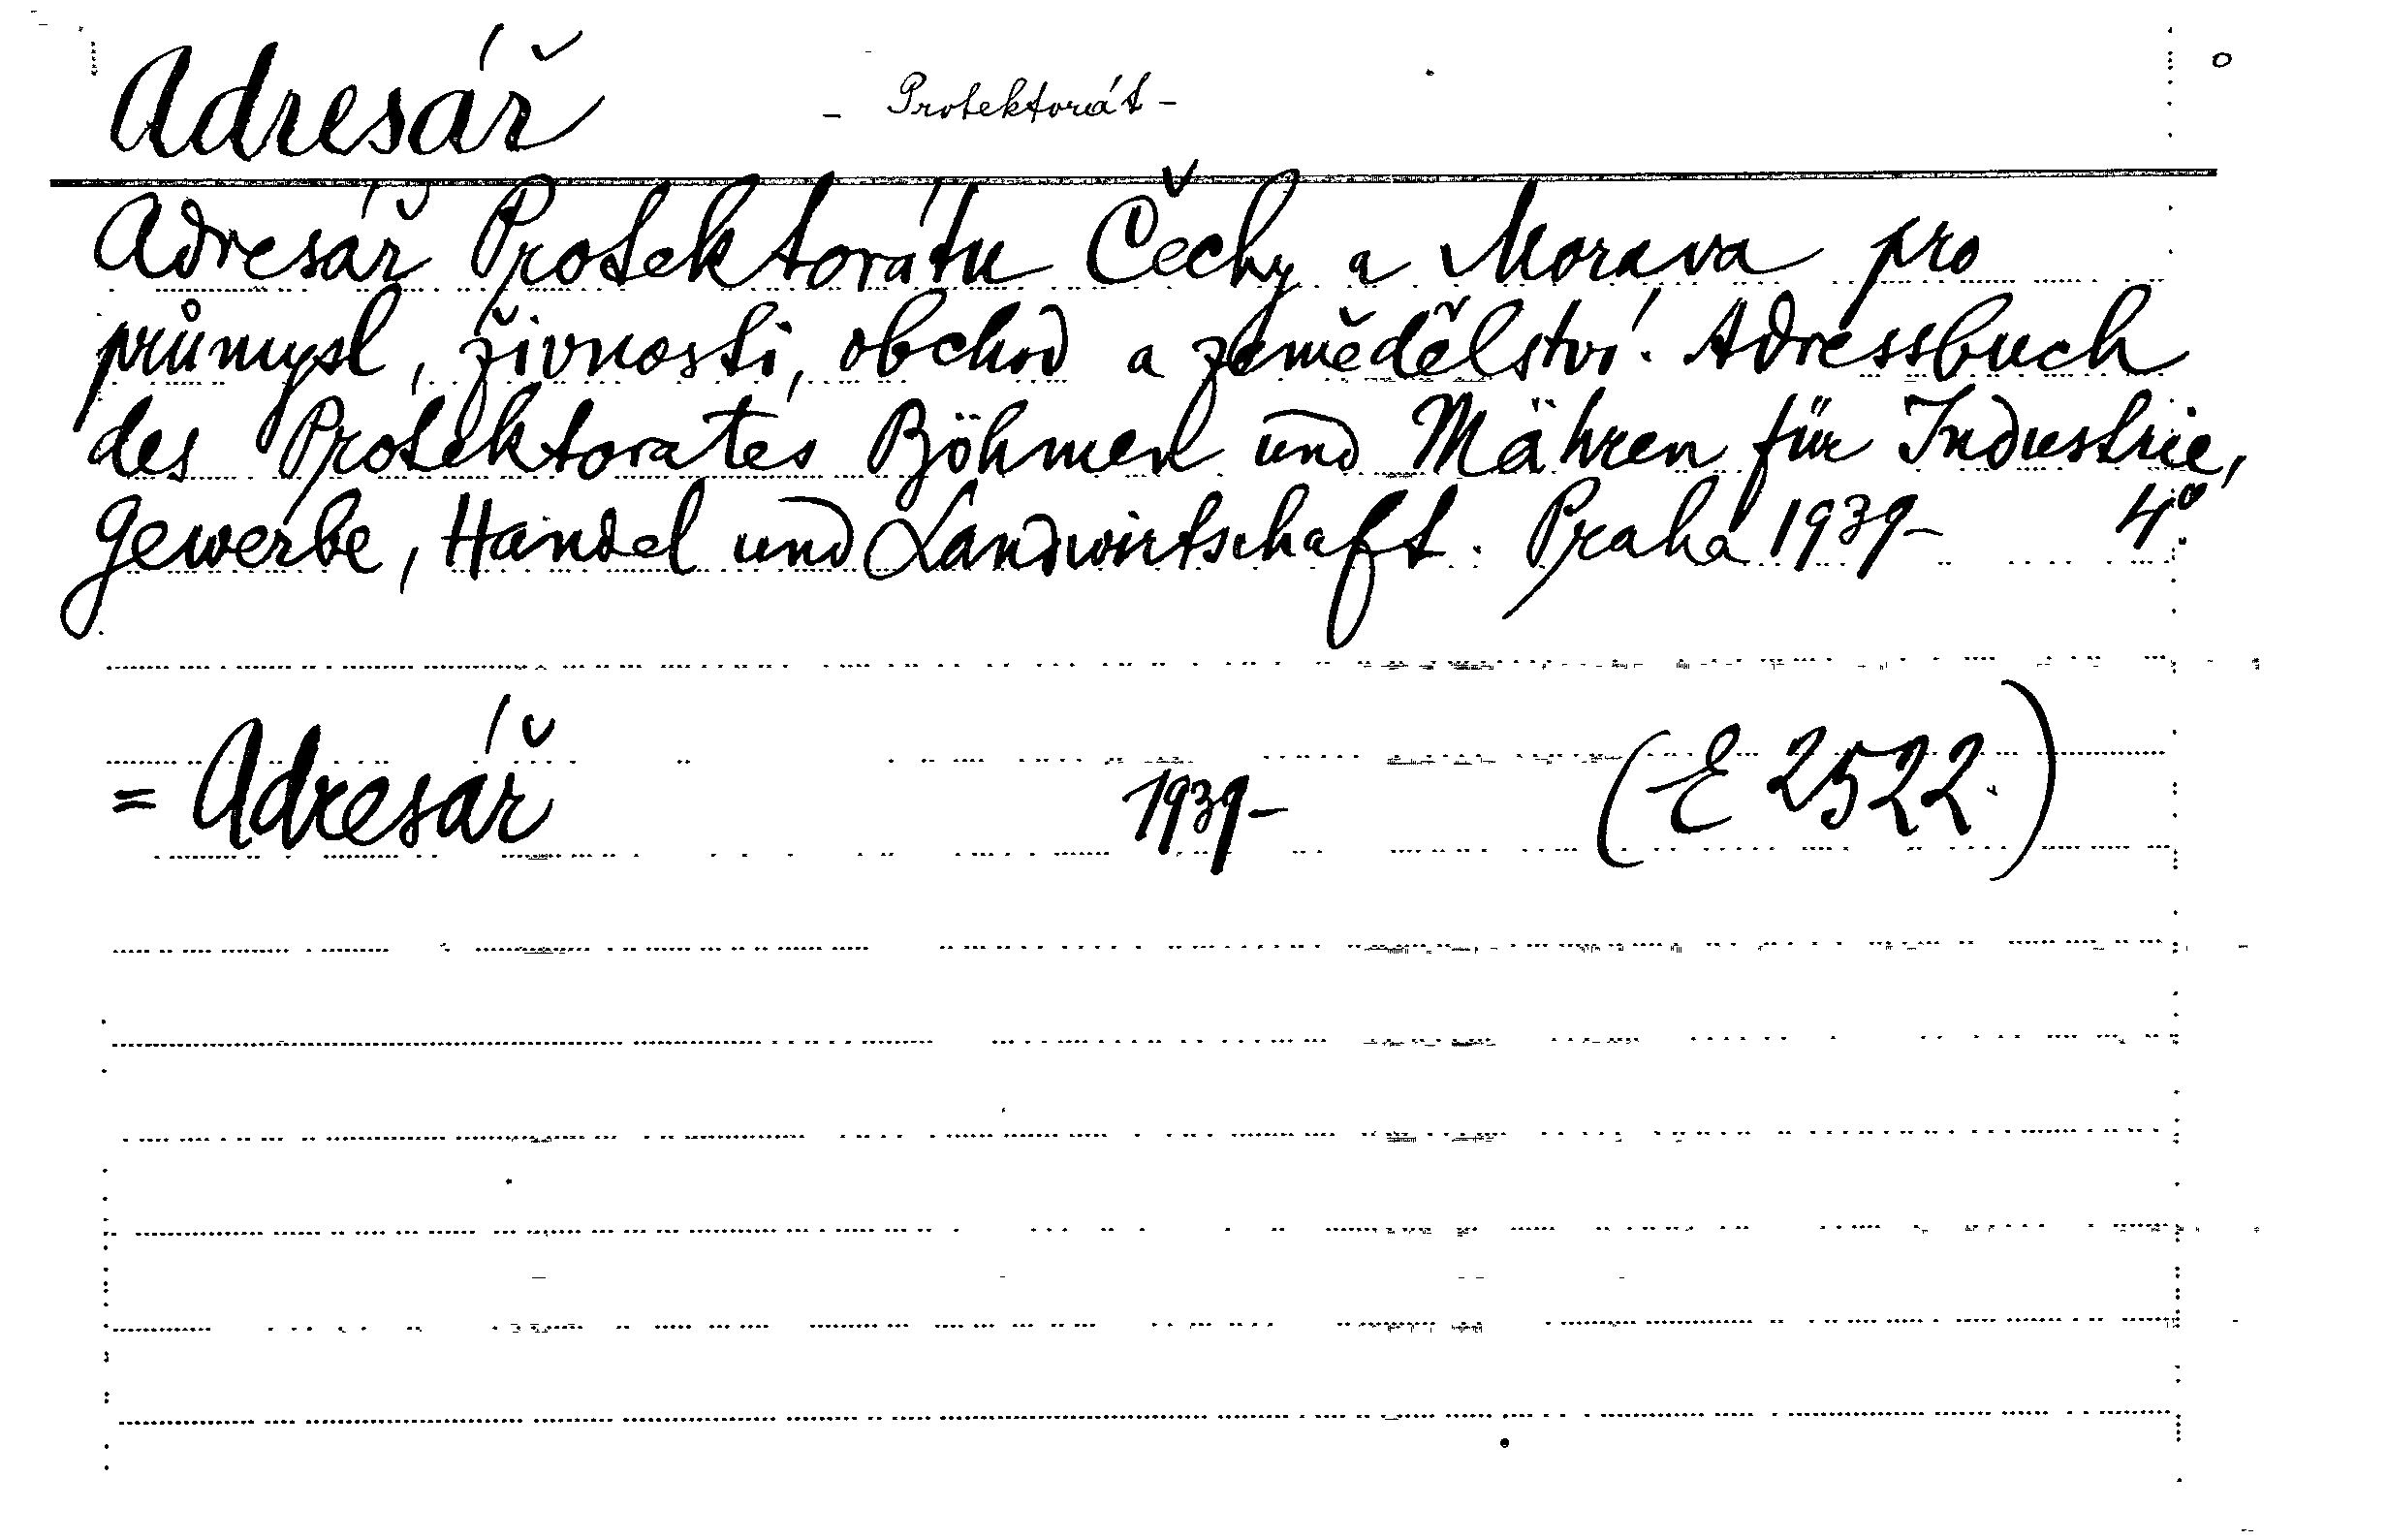 Adresář - Protektorát -
Adresář Protektorátu Čechy a Morava pro
průmysl, živnosti, obchod a zemědělství. Adressbuch
des Protektorates Böhmen und Mähren für Industrie,
Gewerbe, Handel und Landwirtschaft. Praha 1939- 4°.
= Adresář 1939- (E 2522.)